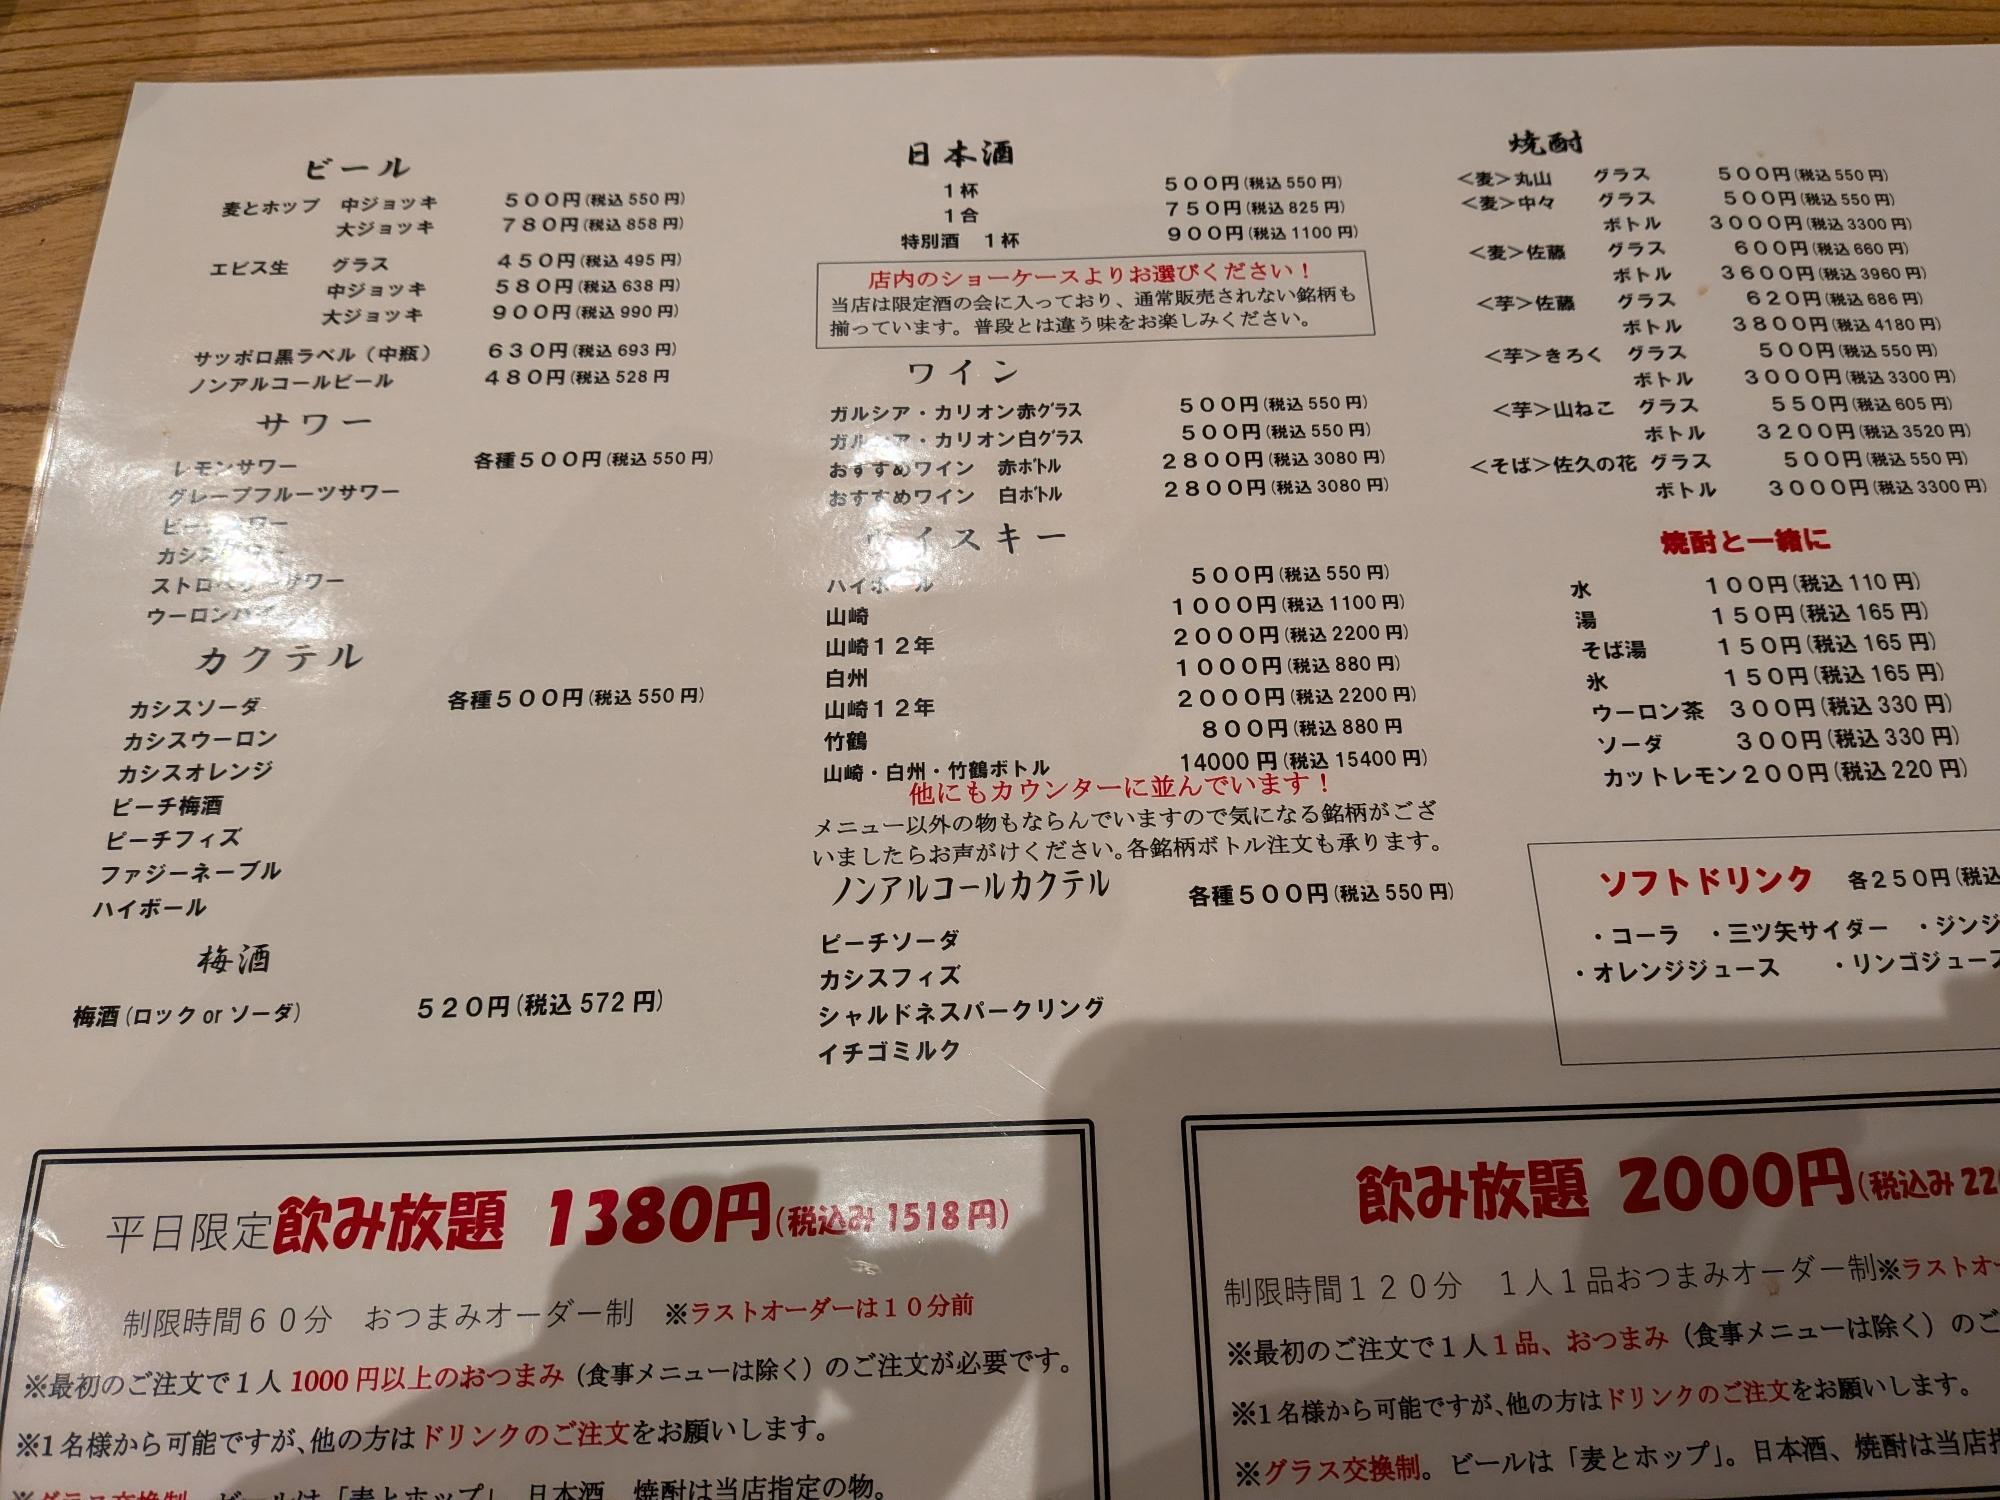 ビール
麦とホップ 中ジョッキ 500円(税込 550 円)
大ジョッキ 780円(税込 858 円)
エビス生 グラス 450円(税込 495 円)
中ジョッキ 580円(税込 638 円)
大ジョッキ 900円(税込 990 円)
サッポロ黒ラベル（中瓶） 630円(税込 693 円)
ノンアルコールビール 480円(税込 528 円
サワー
レモンサワー 各種500円(税込 550 円)
グレープフルーツサワー
ピーチサワー
カシスサワー
ストロベリーサワー
ウーロンハイ
カクテル
カシスソーダ 各種500円(税込 550 円)
カシスウーロン
カシスオレンジ
ピーチ梅酒
ピーチフィズ
ファジーネーブル
ハイボール
梅酒
梅酒(ロック or ソーダ) 520円(税込 572 円)
日本酒
1杯 500円(税込 550 円)
1合 750円(税込 825 円)
特別酒 1杯 900円(税込 1100 円)
店内のショーケースよりお選びください！
当店は限定酒の会に入っており、通常販売されない銘柄も
揃っています。普段とは違う味をお楽しみください。
ワイン
ガルシア・カリオン赤グラス 500円(税込 550 円)
ガルシア・カリオン白グラス 500円(税込 550 円)
おすすめワイン 赤ボトル 2800円(税込 3080 円)
おすすめワイン 白ボトル 2800円(税込 3080 円)
ウイスキー
ハイボール 500円(税込 550 円)
山崎 1000円(税込 1100 円)
山崎12年 2000円(税込 2200 円)
白州 1000円(税込 880 円)
山崎12年 2000円(税込 2200 円)
竹鶴 800円(税込 880 円
山崎・白州・竹鶴ボトル 14000 円(税込 15400 円)
他にもカウンターに並んでいます！
メニュー以外の物もならんでいますので気になる銘柄がござ
いましたらお声がけください。各銘柄ボトル注文も承ります。
ノンアルコールカクテル 各種500円(税込 550 円)
ピーチソーダ
カシスフィズ
シャルドネスパークリング
イチゴミルク
焼酎
＜麦＞丸山 グラス 500円(税込 550 円)
＜麦＞中々 グラス 500円(税込 550 円)
ボトル 3000円(税込 3300 円)
＜麦＞佐藤 グラス 600円(税込 660 円)
ボトル 3600円(税込 3960 円)
＜芋＞佐藤 グラス 620円(税込 686 円)
ボトル 3800円(税込 4180 円)
＜芋＞きろく グラス 500円(税込 550 円)
ボトル 3000円(税込 3300 円)
＜芋＞山ねこ グラス 550円(税込 605 円)
ボトル 3200円(税込 3520 円)
＜そば＞佐久の花 グラス 500円(税込 550 円)
ボトル 3000円(税込 3300 円)
焼酎と一緒に
水 100円(税込 110 円)
湯 150円(税込 165 円)
そば湯 150円(税込 165 円)
氷 150円(税込 165 円)
ウーロン茶 300円(税込 330 円)
ソーダ 300円(税込 330 円)
カットレモン200円(税込 220 円)
ソフトドリンク 各250円(税込
・コーラ ・三ツ矢サイダー ・ジンジ
・オレンジジュース ・リンゴジュース
平日限定飲み放題 1380円(税込み 1518 円)
制限時間60分 おつまみオーダー制 ※ラストオーダーは10分前
※最初のご注文で1人 1000 円以上のおつまみ（食事メニューは除く）のご注文が必要です。
※1名様から可能ですが、他の方はドリンクのご注文をお願いします。
※グラス交換制。ビールは「麦とホップ」。日本酒、焼酎は当店指定の物。
飲み放題 2000円(税込み 220
制限時間120分 1人1品おつまみオーダー制※ラストオー
※最初のご注文で1人1品、おつまみ（食事メニューは除く）のご
※1名様から可能ですが、他の方はドリンクのご注文をお願いします。
※グラス交換制。ビールは「麦とホップ」。日本酒、焼酎は当店指